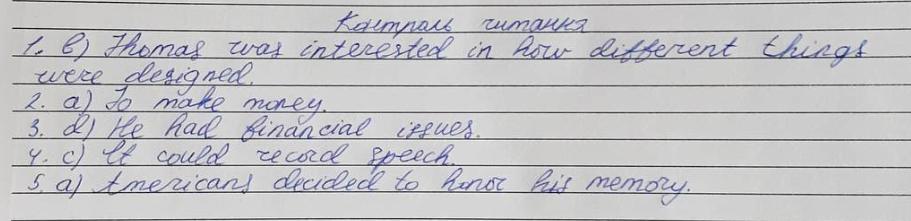 Контроль читання
1. b) Thomas was interested in how different things
were designed.
2. a) To make money.
3. d) He had financial issues.
4. c) It could record speech.
5. a) Americans decided to honor his memory.